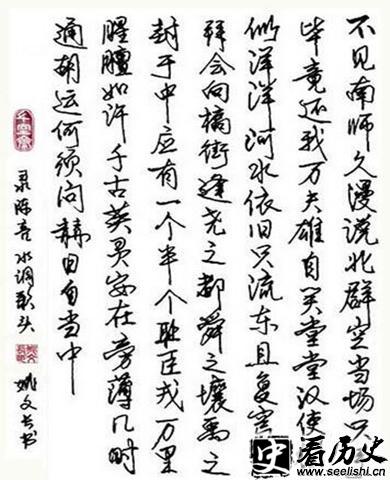 不见南师久漫说北群空当场只
毕竟还我万夫雄自笑堂堂汉使
似洋洋河水依旧只流东且复穹
拜会向槁街逢尧之都舜之壤禹之
封于中应有一个半个耻臣戎万里
腥膻如许千古英灵安在旁薄几时
通胡运何须问赫日自当中
录陈亮水调歌头
姚文长书
史看历史
www.seelishi.cn